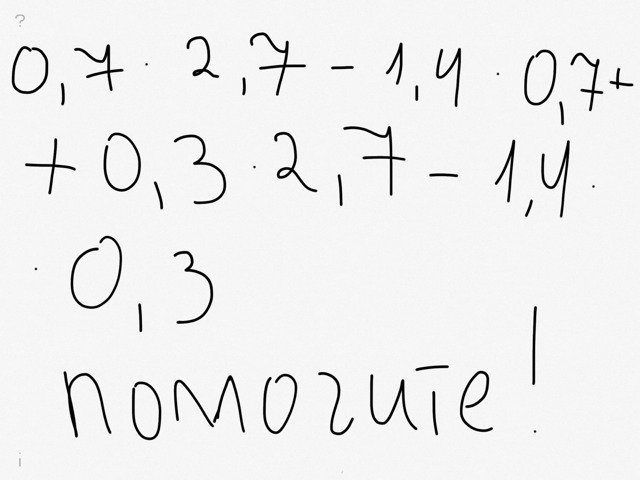 ?
0,7 · 2,7 - 1,4 · 0,7 +
+ 0,3 · 2,7 - 1,4 ·
· 0,3
помогите!
i